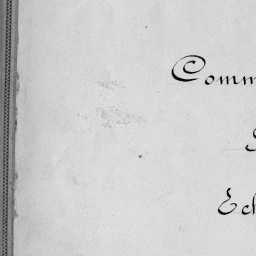 Comm
Ech